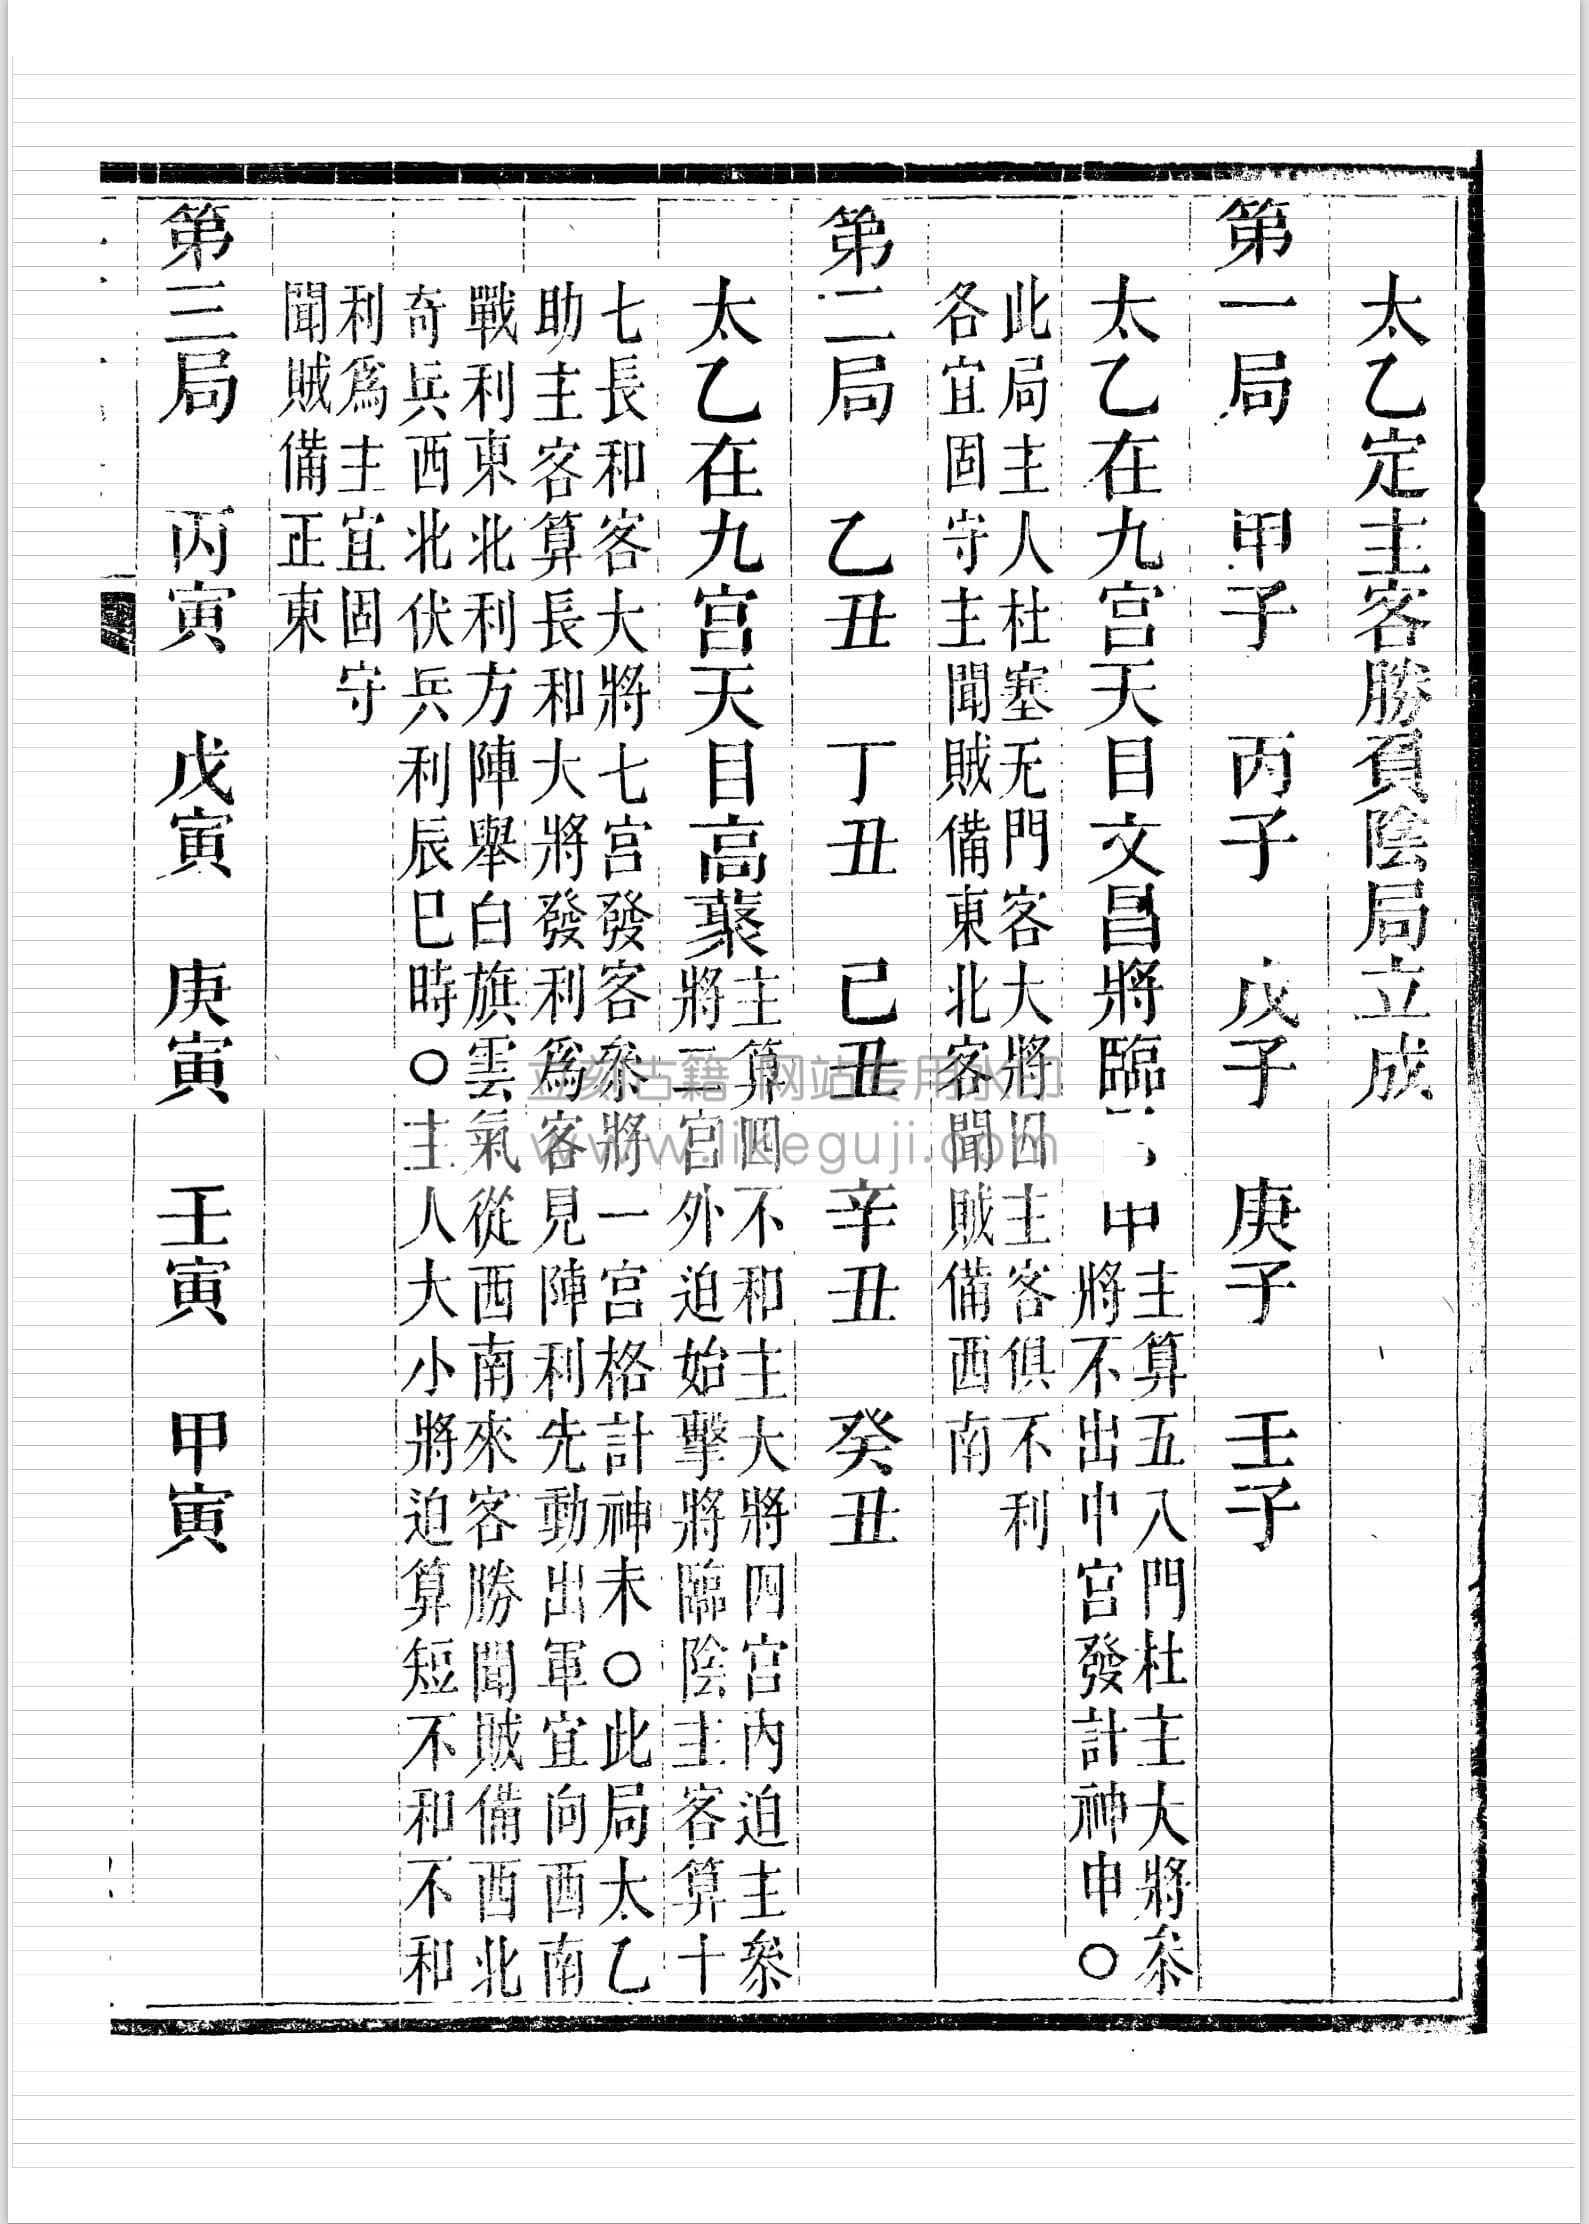 太乙定主客勝負陰局立成
第一局　甲子　丙子　戊子　庚子　壬子
太乙在九宮天目文昌將臨
中
主算五八門杜主大將叅
將不出中宮發計神申〇
此局主人杜塞无門客大將囚主客俱不利
各宜固守主聞賊備東北客聞賊備西南
第二局　乙丑　丁丑　己丑　辛丑　癸丑
太乙在九宮天目高叢
主算四不和主大將四宮內迫主叅
將二宮外迫始擊將臨陰主客算十
七長和客大將七宮發客叅將一宮格計神未〇此局太乙
助主客算長和大將發利為客見陣利先動出軍宜向酉南
戰利東北利方陣舉白旗雲氣從西南來客勝聞賊備西北
奇兵西北伏兵利辰巳時〇主人大小將迫算短不和不和
利為主宜固守
聞賊備正東
第三局　丙寅　戊寅　庚寅　壬寅　甲寅
立刻古籍 网站专用水印
www.likeguji.com